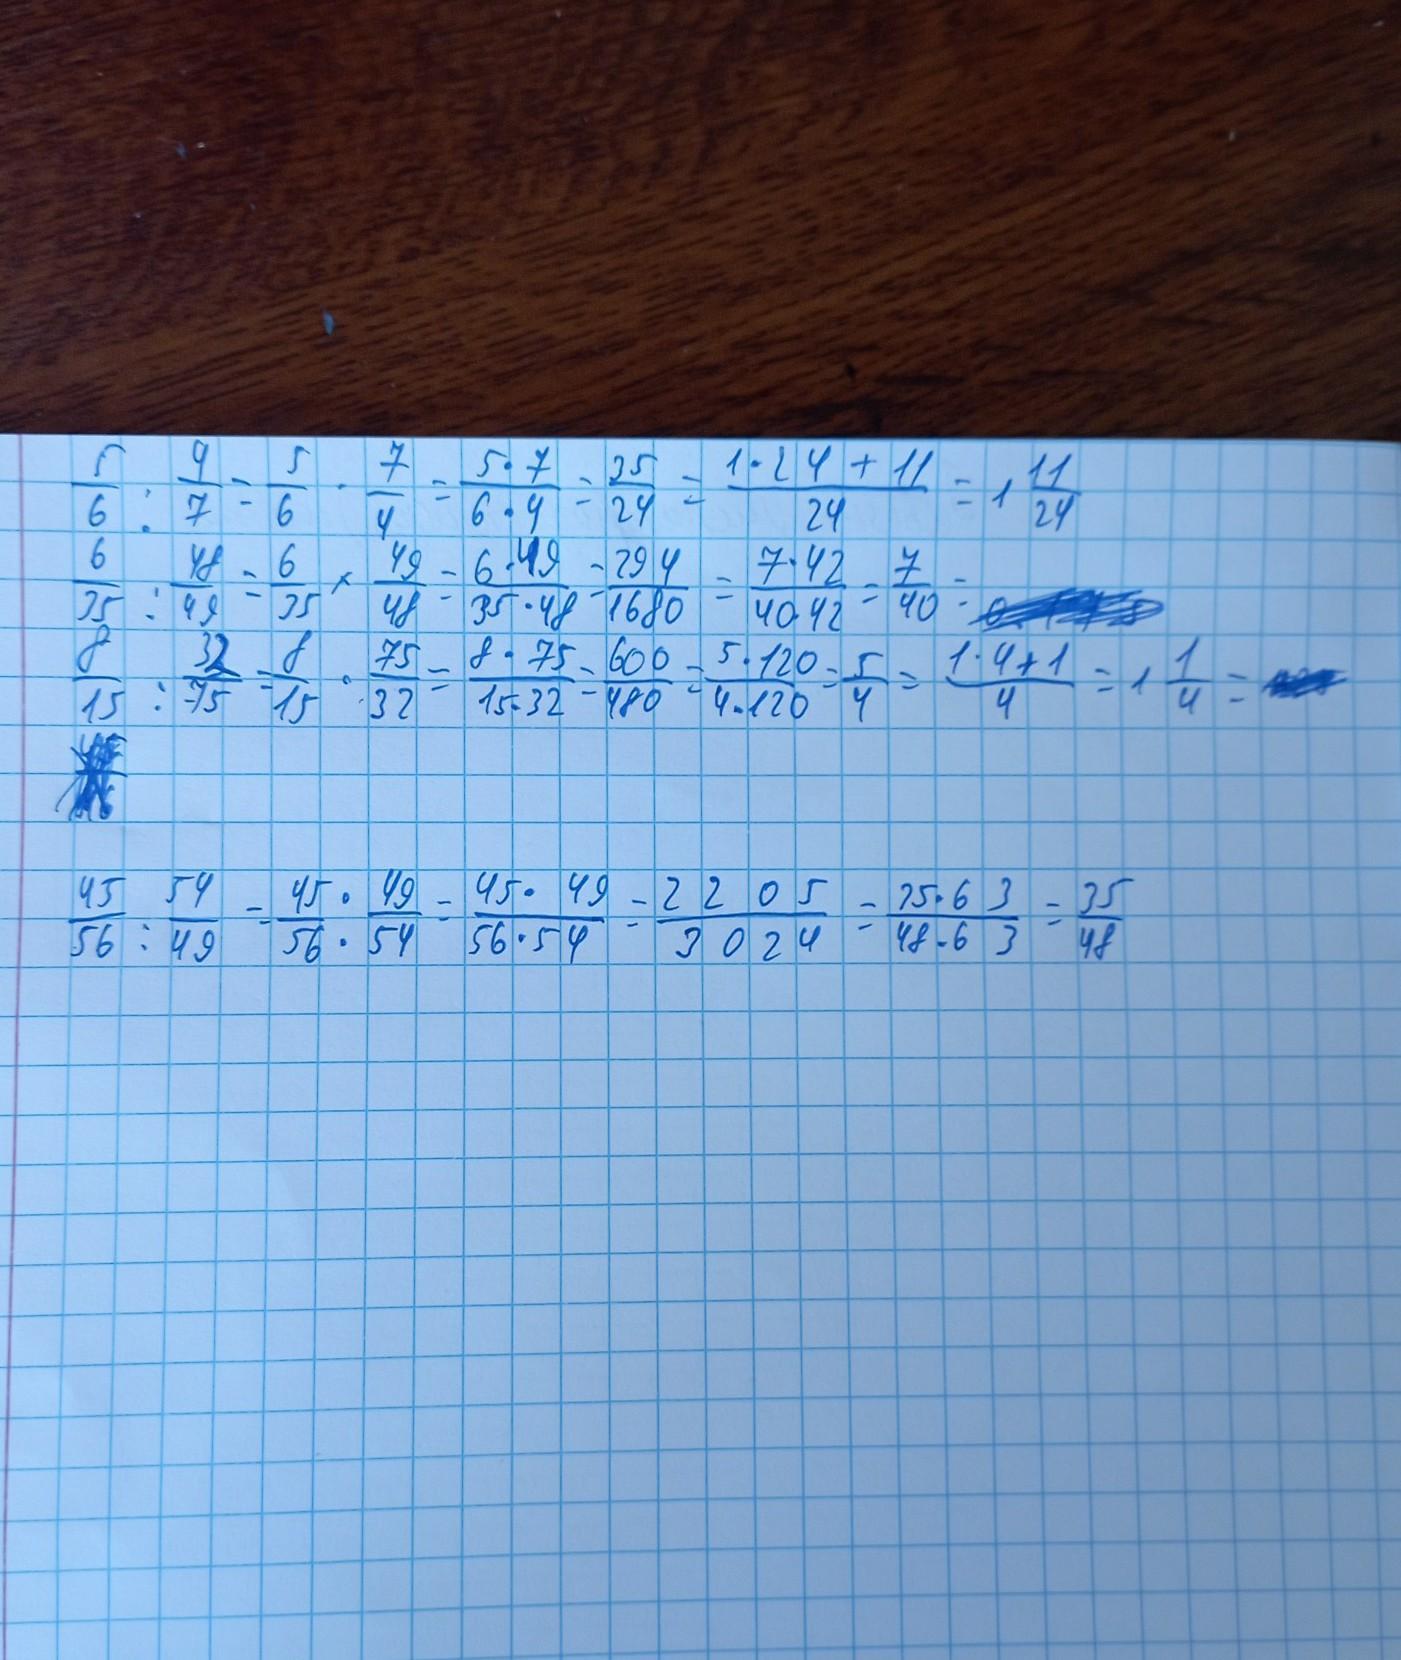 5/6 : 4/7 = 5/6 · 7/4 = 5·7/6·4 = 35/24 = 1·24+11/24 = 1 11/24
6/35 : 48/49 = 6/35 × 49/48 = 6·49/35·48 = 294/1680 = 7·42/40·42 = 7/40 =
8/15 : 32/75 = 8/15 · 75/32 = 8·75/15·32 = 600/480 = 5·120/4·120 = 5/4 = 1·4+1/4 = 1 1/4 =
45/56 : 54/49 = 45·/56· 49/54 = 45·49/56·54 = 2205/3024 = 35·63/48·63 = 35/48